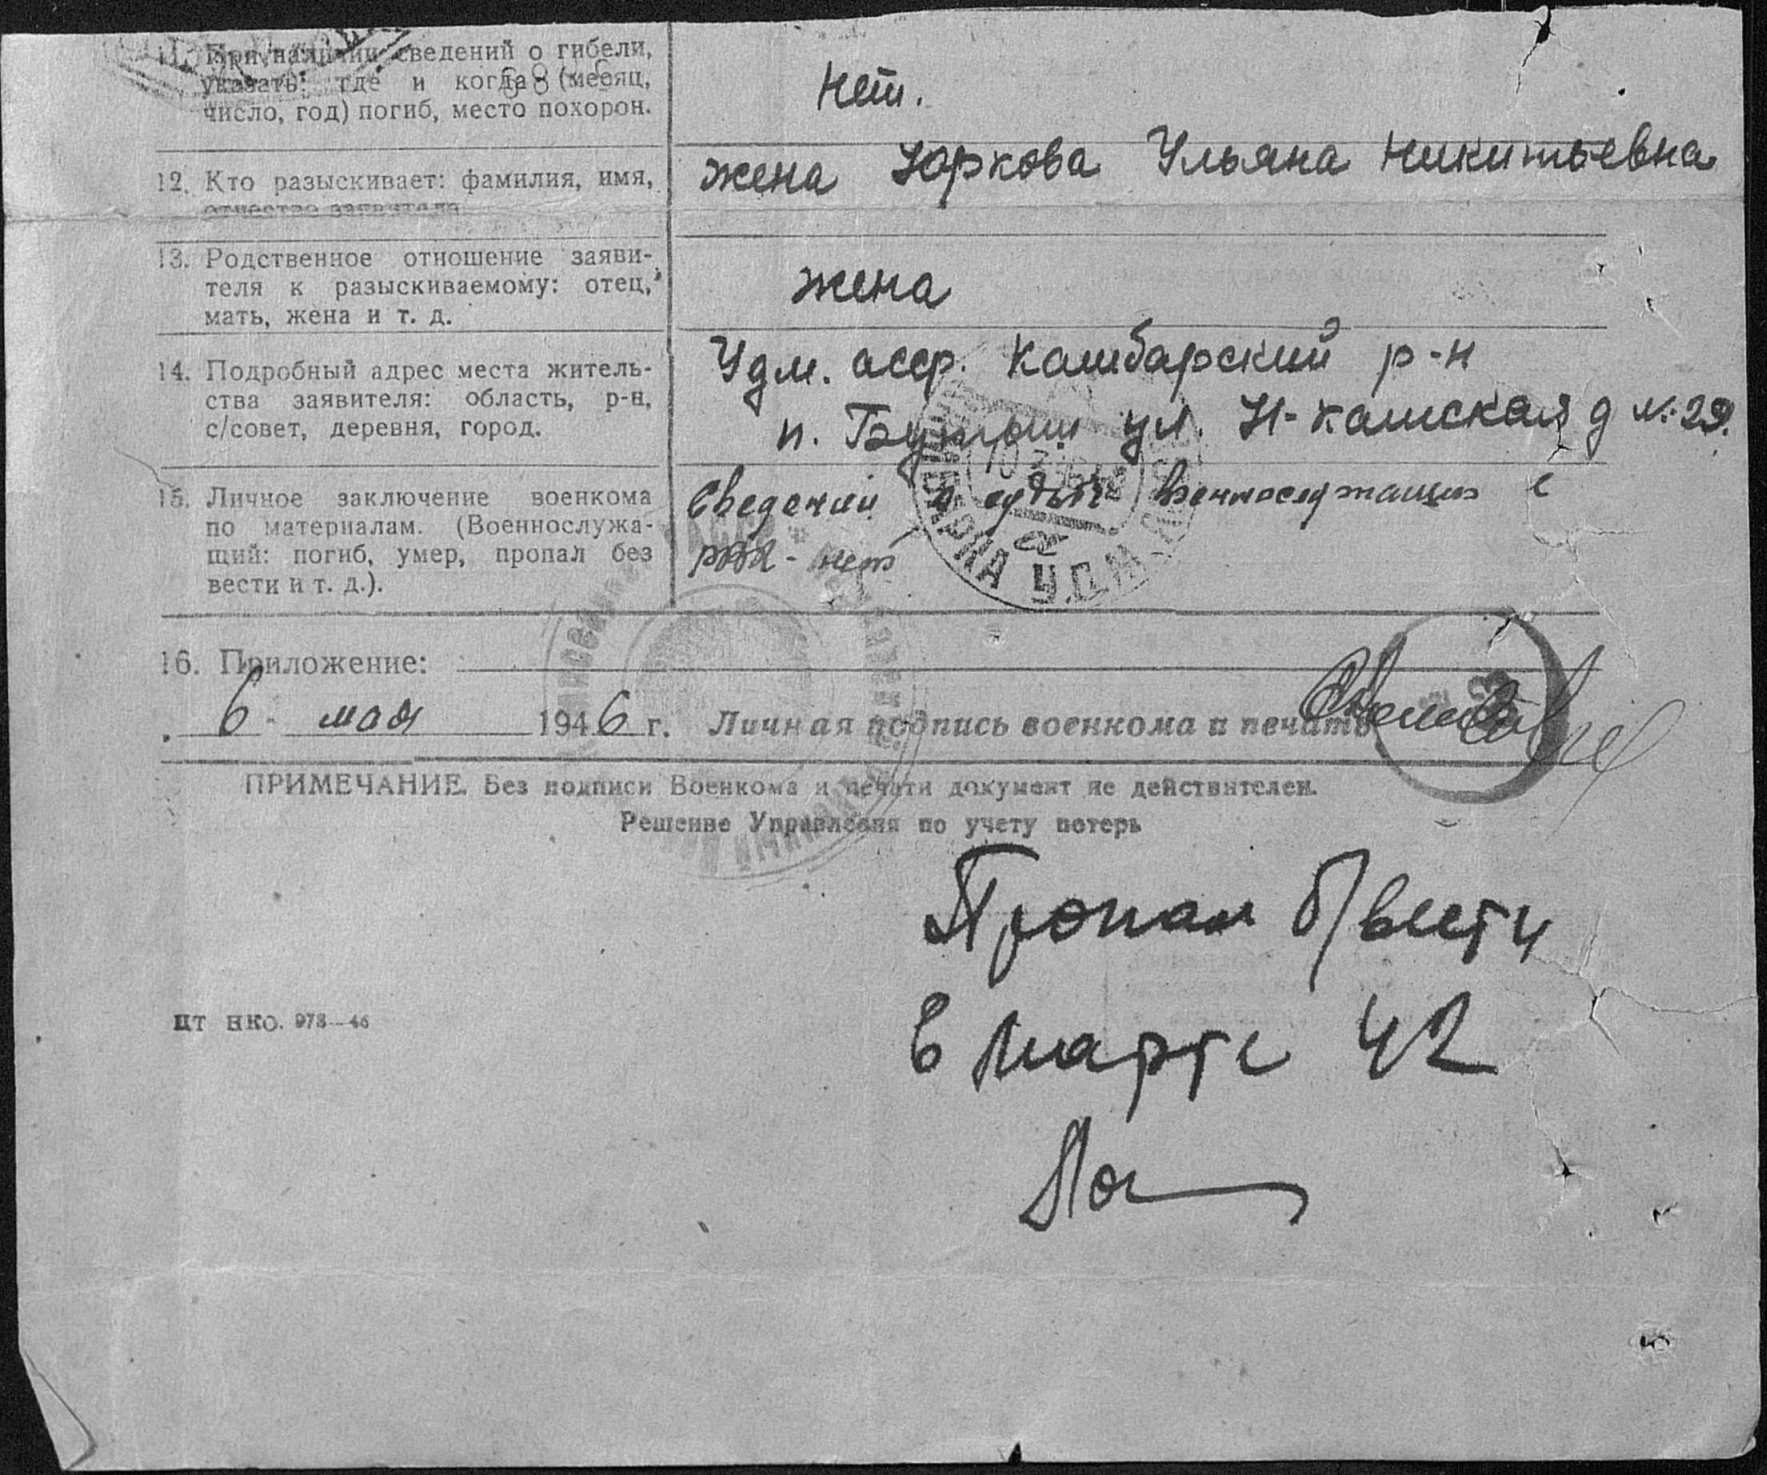 11. При наличии сведений о гибели,
указать: где и когда (месяц,
число, год) погиб, место похорон.
нет.
12. Кто разыскивает: фамилия, имя,
отчество заявителя
жена Юркова Ульяна Никитьевна
13. Родственное отношение заяви-
теля к разыскиваемому: отец,
мать, жена и т. д.
жена
14. Подробный адрес места житель-
ства заявителя: область, р-н,
с/совет, деревня, город.
Удм. асср. Камбарский р-н
п. Бутыш ул. Н-Камская д № 29.
15. Личное заключение военкома
по материалам. (Военнослужа-
щий: погиб, умер, пропал без
вести и т. д.).
Сведений о судьбе военнослужащих с
нет
16. Приложение:
6 мая 1946 г. Личная подпись военкома и печать
ПРИМЕЧАНИЕ. Без подписи Военкома и печати документ не действителен.
Решение Управления по учету потерь
Пропал б/вести
в марте 42
ЦТ НКО. 973—46